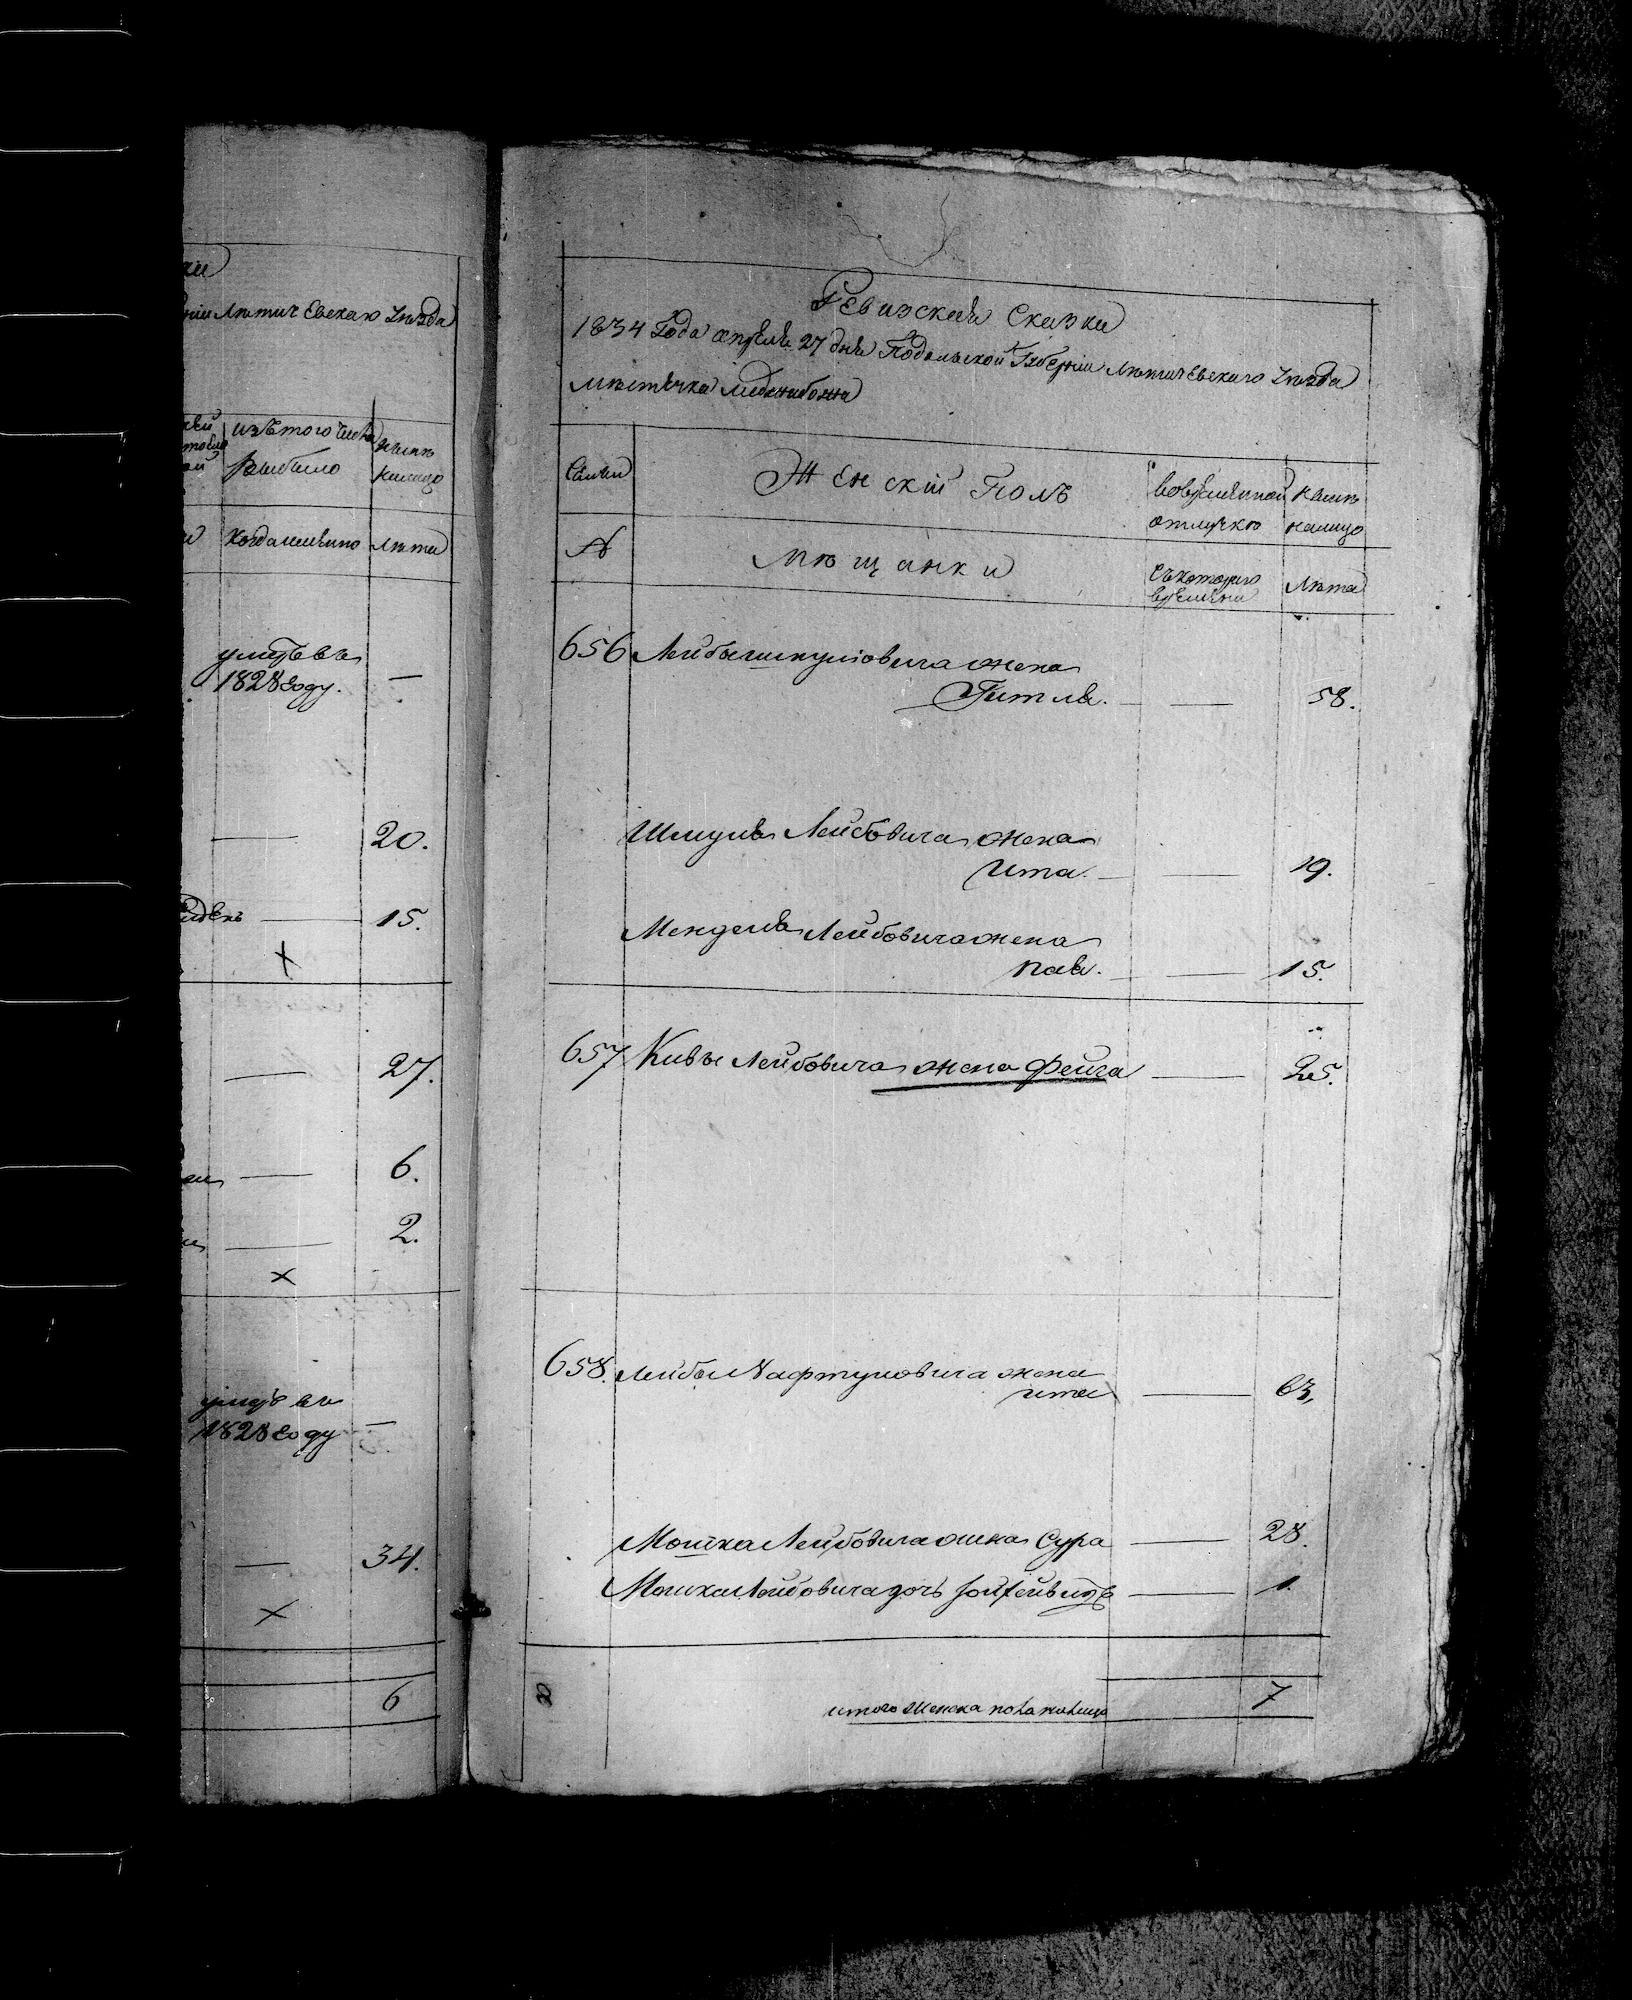 Летичевскаго Уѣзда
изъ того числа
выбыло
нынѣ
налицо
когда имянно
лѣта
умеръ въ
1828 году. —
— 20.
— 15.
×
— 27.
— 6.
— 2.
×
умеръ въ
1828 году —
— 34.
×
6
Ревизская Сказка
1834 Года апреля 27 дня Подольской Губерніи Летичевскаго Уѣзда
мѣстечка Меджибожа
Семьи
Женскій Полъ
вовременной
отлучкѣ
нынѣ
налицо
№
мѣщанки
съ котораго
времени
лѣта
656 Лейбы Шмулiовича жена
Гитля. — 58.
Шмуля Лейбовича жена
Ита. — 19.
Менделя Лейбовича жена
пая. — 15.
657 Кивы Лейбовича жена Фейга — 25.
658. Лейбы Нафтуловича жена
ита — 63,
Мошка Лейбовича жена Сура — 28.
Мошка Лейбовича дочь — 1.
итого женска пола налицо 7